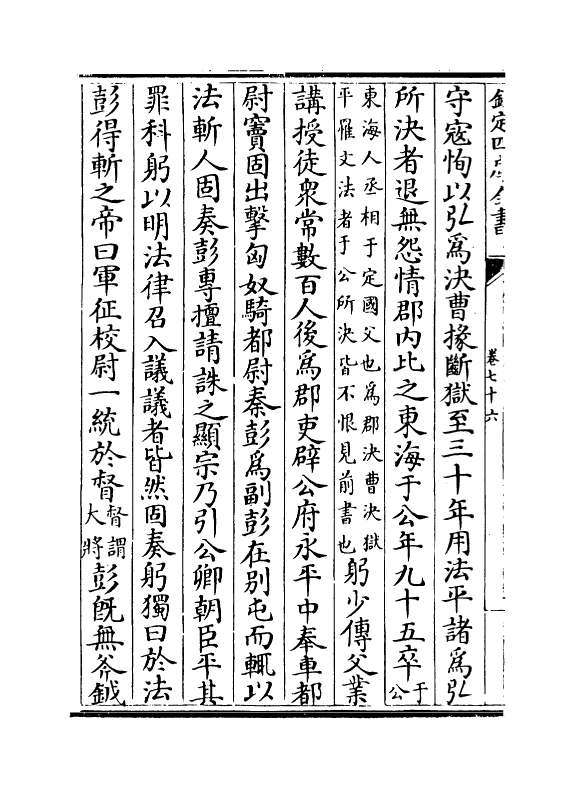 欽定四庫全書
卷七十六
守寇恂以弘爲決曹掾斷獄至三十年用法平諸爲弘
所決者退無怨情郡內比之東海于公年九十五卒于公
東海人丞相于定國父也爲郡決曹決獄平羅文法者于公所決皆不恨見前書也躬少傳父業
講授徒衆常數百人後爲郡吏辟公府永平中奉車都
尉竇固出擊匈奴騎都尉秦彭爲副彭在别屯而輒以
法斬人固奏彭專擅請誅之顯宗乃引公卿朝臣平其
罪科躬以明法律召入議議者皆然固奏躬獨曰於法
彭得斬之帝曰軍征校尉一統於督督謂大將彭旣無斧鉞